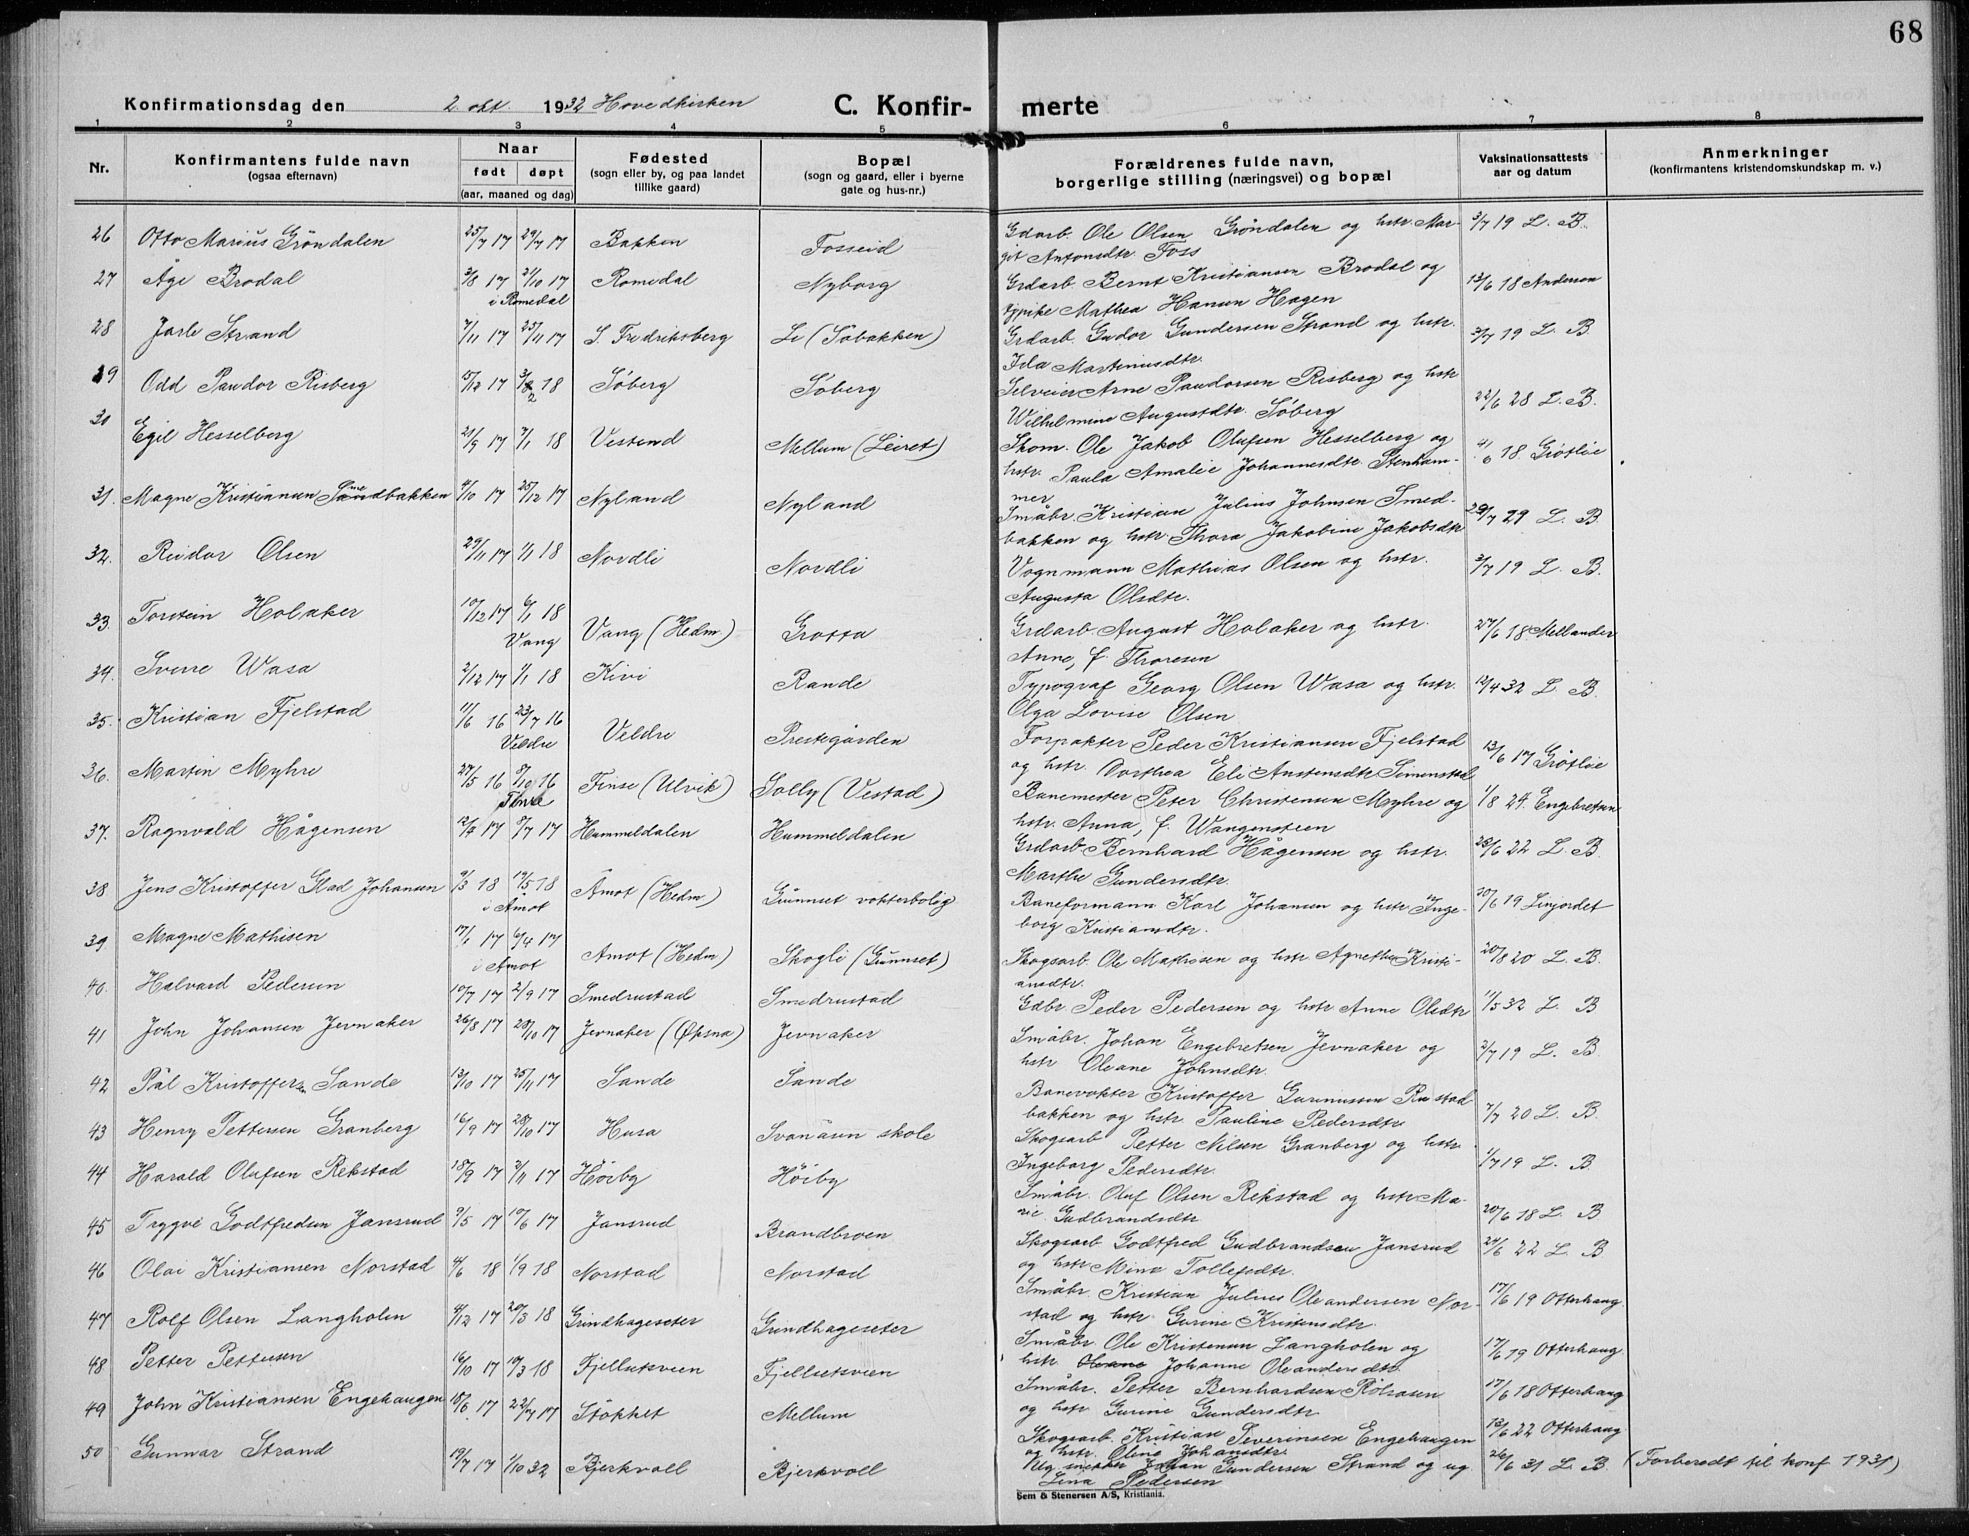 68
Konfirmationsdag den 2. okt. 1932 Hovedkirken C. Konfir- merte
1 2 3 4 5 6 7 8
Nr. Konfirmantens fulde navn (ogsaa efternavn) Naar født døpt (aar, maaned og dag) Fødested (sogn eller by, og paa landet tillike gaard) Bopæl (sogn og gaard, eller i byerne gate og hus-nr.) Forældrenes fulde navn, borgerlige stilling (næringsvei) og bopæl Vaksinationsattests aar og datum Anmerkninger (konfirmantens kristendomskundskap m. v.)
26 Otto Marius Gröndalen 25/7 17 29/7 17 Bakken Fosseid Gdarb. Ole Olsen Gröndalen og hstr. Mar-
git Antonsdtr. Foss 3/7 19 L. B.
27 Åge Brodal 3/8 17 21/10 17 i Romedal Romedal Nyborg Grdarb. Bernt Kristiansen Brodal og
pike Mathea Hansen Hagen 13/6 18 Andersen
28 Jarle Strand 7/11 17 25/11 17 S. Fredriksberg Li (Söbakken) Grdarb. Gudor Gundersen Strand og hstr.
Ida Martiniusdtr. 3/7 19 L. B.
29 Odd Paudor Risberg 15/12 17 18 Söberg Söberg Selveier Arne Paudorsen Risberg og hstr
Wilhelmine Augustdtr. Söberg 22/6 28 L. B.
30 Egil Hesselberg 21/9 17 7/1 18 Vestend Mellum (Leiret) Skom. Ole Jakob Olufsen Hesselberg og
hstr. Paula Amalie Johannesdtr. Stenham-
mer 4/6 18 Grötlie
31. Magne Kristiansen Smedbakken 4/10 17 25/12 17 Nyland Nyland Småbr. Kristian Julius Johnsen Smed-
bakken og hstr. Thora Jakobine Jakobsdtr 29/7 29 L. B.
32. Reidar Olsen 29/11 17 1/1 18 Nordli Nordli Vognmann Mathias Olsen og hstr.
Augusta Olsdtr. 3/7 19 L. B.
33. Torstein Holaker 10/12 17 6/1 18 Vang Vang (Hedm.) Grotta Grdarb. August Holaker og hstr.
Anne, f. Thoresen 27/6 18 Mellander
34. Sverre Wasa 2/12 17 1/1 18 Kivi Rande Typograf Georg Olsen Wasa og hstr.
Olga Lovise Olsen 12/4 32 L. B.
35. Kristian Fjelstad 11/6 16 23/7 16 Veldre Veldre Prestegården Forpakter Peder Kristiansen Fjelstad
og hstr. Dorthea Eli Austensdtr Simenstad 13/6 17 Grötlie
36. Martin Myhre 27/5 16 8/10 16 Finse Finse (Ulvik) Solly (Vestad) Banemester Peter Christensen Myhre og
hstr. Anna, f. Wangensteen 1/8 24 Engebretsen
37. Ragnvald Hågensen 17 8/7 17 Hummeldalen Hummeldalen Grdarb. Bernhard Hågensen og hstr.
Marthe Gundersdtr. 28/6 22 L. B.
38 Jens Kristoffer Glad Johansen 9/3 18 19/5 18 i Åmot Åmot (Hedm) Gunnset vokterbolig Baneformann Karl Johansen og hstr Inge-
borg Kristiansdtr. 30/6 19 Linjordet
39 Magne Mathisen 17/1 17 6/4 17 i Åmot Åmot (Hedm) Skogli (Gunnset) Skogsarb. Ole Mathisen og hstr Agnethe Kristi-
ansdtr. 20/8 20 L. B.
40. Halvard Pedersen 10/7 17 2/9 17 Smedrustad Smedrustad Gdbr Peder Pedersen og hstr Anne Olsdtr 11/5 32 L. B
41 John Johansen Jevnaker 26/8 17 28/10 17 Jevnaker (Öpsna) Jevnaker Småbr. Johan Engebretsen Jevnaker og
hstr Oleane Johnsdtr. 2/7 19 L. B.
42 Pål Kristoffersen Sande 13/10 17 25/11 17 Sande Sande Banevokter Kristoffer Gunnussen Rustad
bakken og hstr Pauline Pedersdtr. 7/7 20 L. B
43 Henry Pettersen Granberg 16/9 17 28/10 17 Husa Svanåsen skole Skogsarb Petter Nilsen Granberg og hstr
Ingeborg Pedersdtr. 1/7 19 L. B
44 Harald Olufsen Rekstad 18/9 17 2/11 17 Höiby Höiby Småbr. Oluf Olsen Rekstad og hstr Ma-
rie Gudbrandsdtr 20/6 18 L. B
45 Trygve Godtfredsen Jansrud 9/5 17 10/6 17 Jansrud Brandbroen Skogsarb Godtfred Gudbrandsen Jansrud
og hstr Mina Tollefsdtr. 29/6 22 L. B
46 Olai Kristiansen Norstad 4/6 18 1/9 18 Norstad Norstad Småbr. Kristian Julius Oleandersen Nor-
stad og hstr. Gurine Kristensdtr. 17/6 19 Otterhaug
47 Rolf Olsen Langholen 4/12 17 20/3 18 Grindhageseter Grindhageseter Småbr Ole Kristensen Langholen og
hstr Oleane Johanne Oleandersdtr 17/6 19 Otterhaug
48 Petter Pettersen 16/10 17 10/3 18 Fjellsetsveen Fjellsetsveen Småbr. Petter Bernhardsen Rölvasen
og hstr Gurine Gundersdtr 17/6 18 Otterhaug
49 John Kristiansen Engehaugen 18/6 17 22/7 17 Stökket Mellum Skogsarb. Kristian Severinsen Engehaugen
og hstr. Oline Johansdtr. 12/6 22 Otterhaug
50 Gunnar Strand 19/7 17 1/10 32 Bjerkvoll Bjerkvoll Ug snekker Johan Gundersen Strand og ug.
Lina Pedersen 26/6 31 L. B. (Forberedt til konf 1931)
Sem & Stenersen A/S, Kristiania.